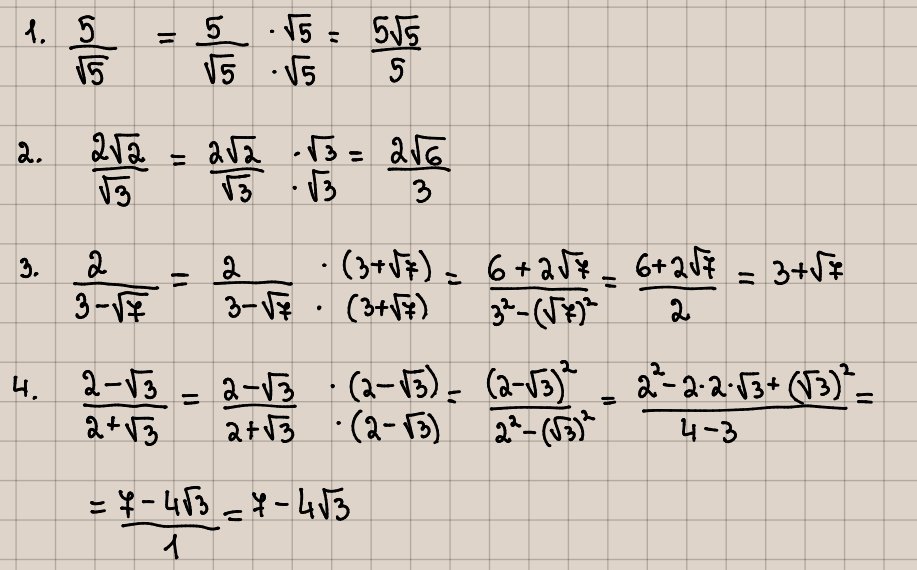 1. 5/√5 = 5/√5 · √5/· √5 = 5√5/5
2. 2√2/√3 = 2√2/√3 · √3/· √3 = 2√6/3
3. 2/(3-√7) = 2/(3-√7) · (3+√7)/· (3+√7) = (6+2√7)/(3²-(√7)²) = (6+2√7)/2 = 3+√7
4. (2-√3)/(2+√3) = (2-√3)/(2+√3) · (2-√3)/· (2-√3) = (2-√3)²/(2²-(√3)²) = (2²-2·2·√3+(√3)²)/(4-3) =
= (7-4√3)/1 = 7-4√3